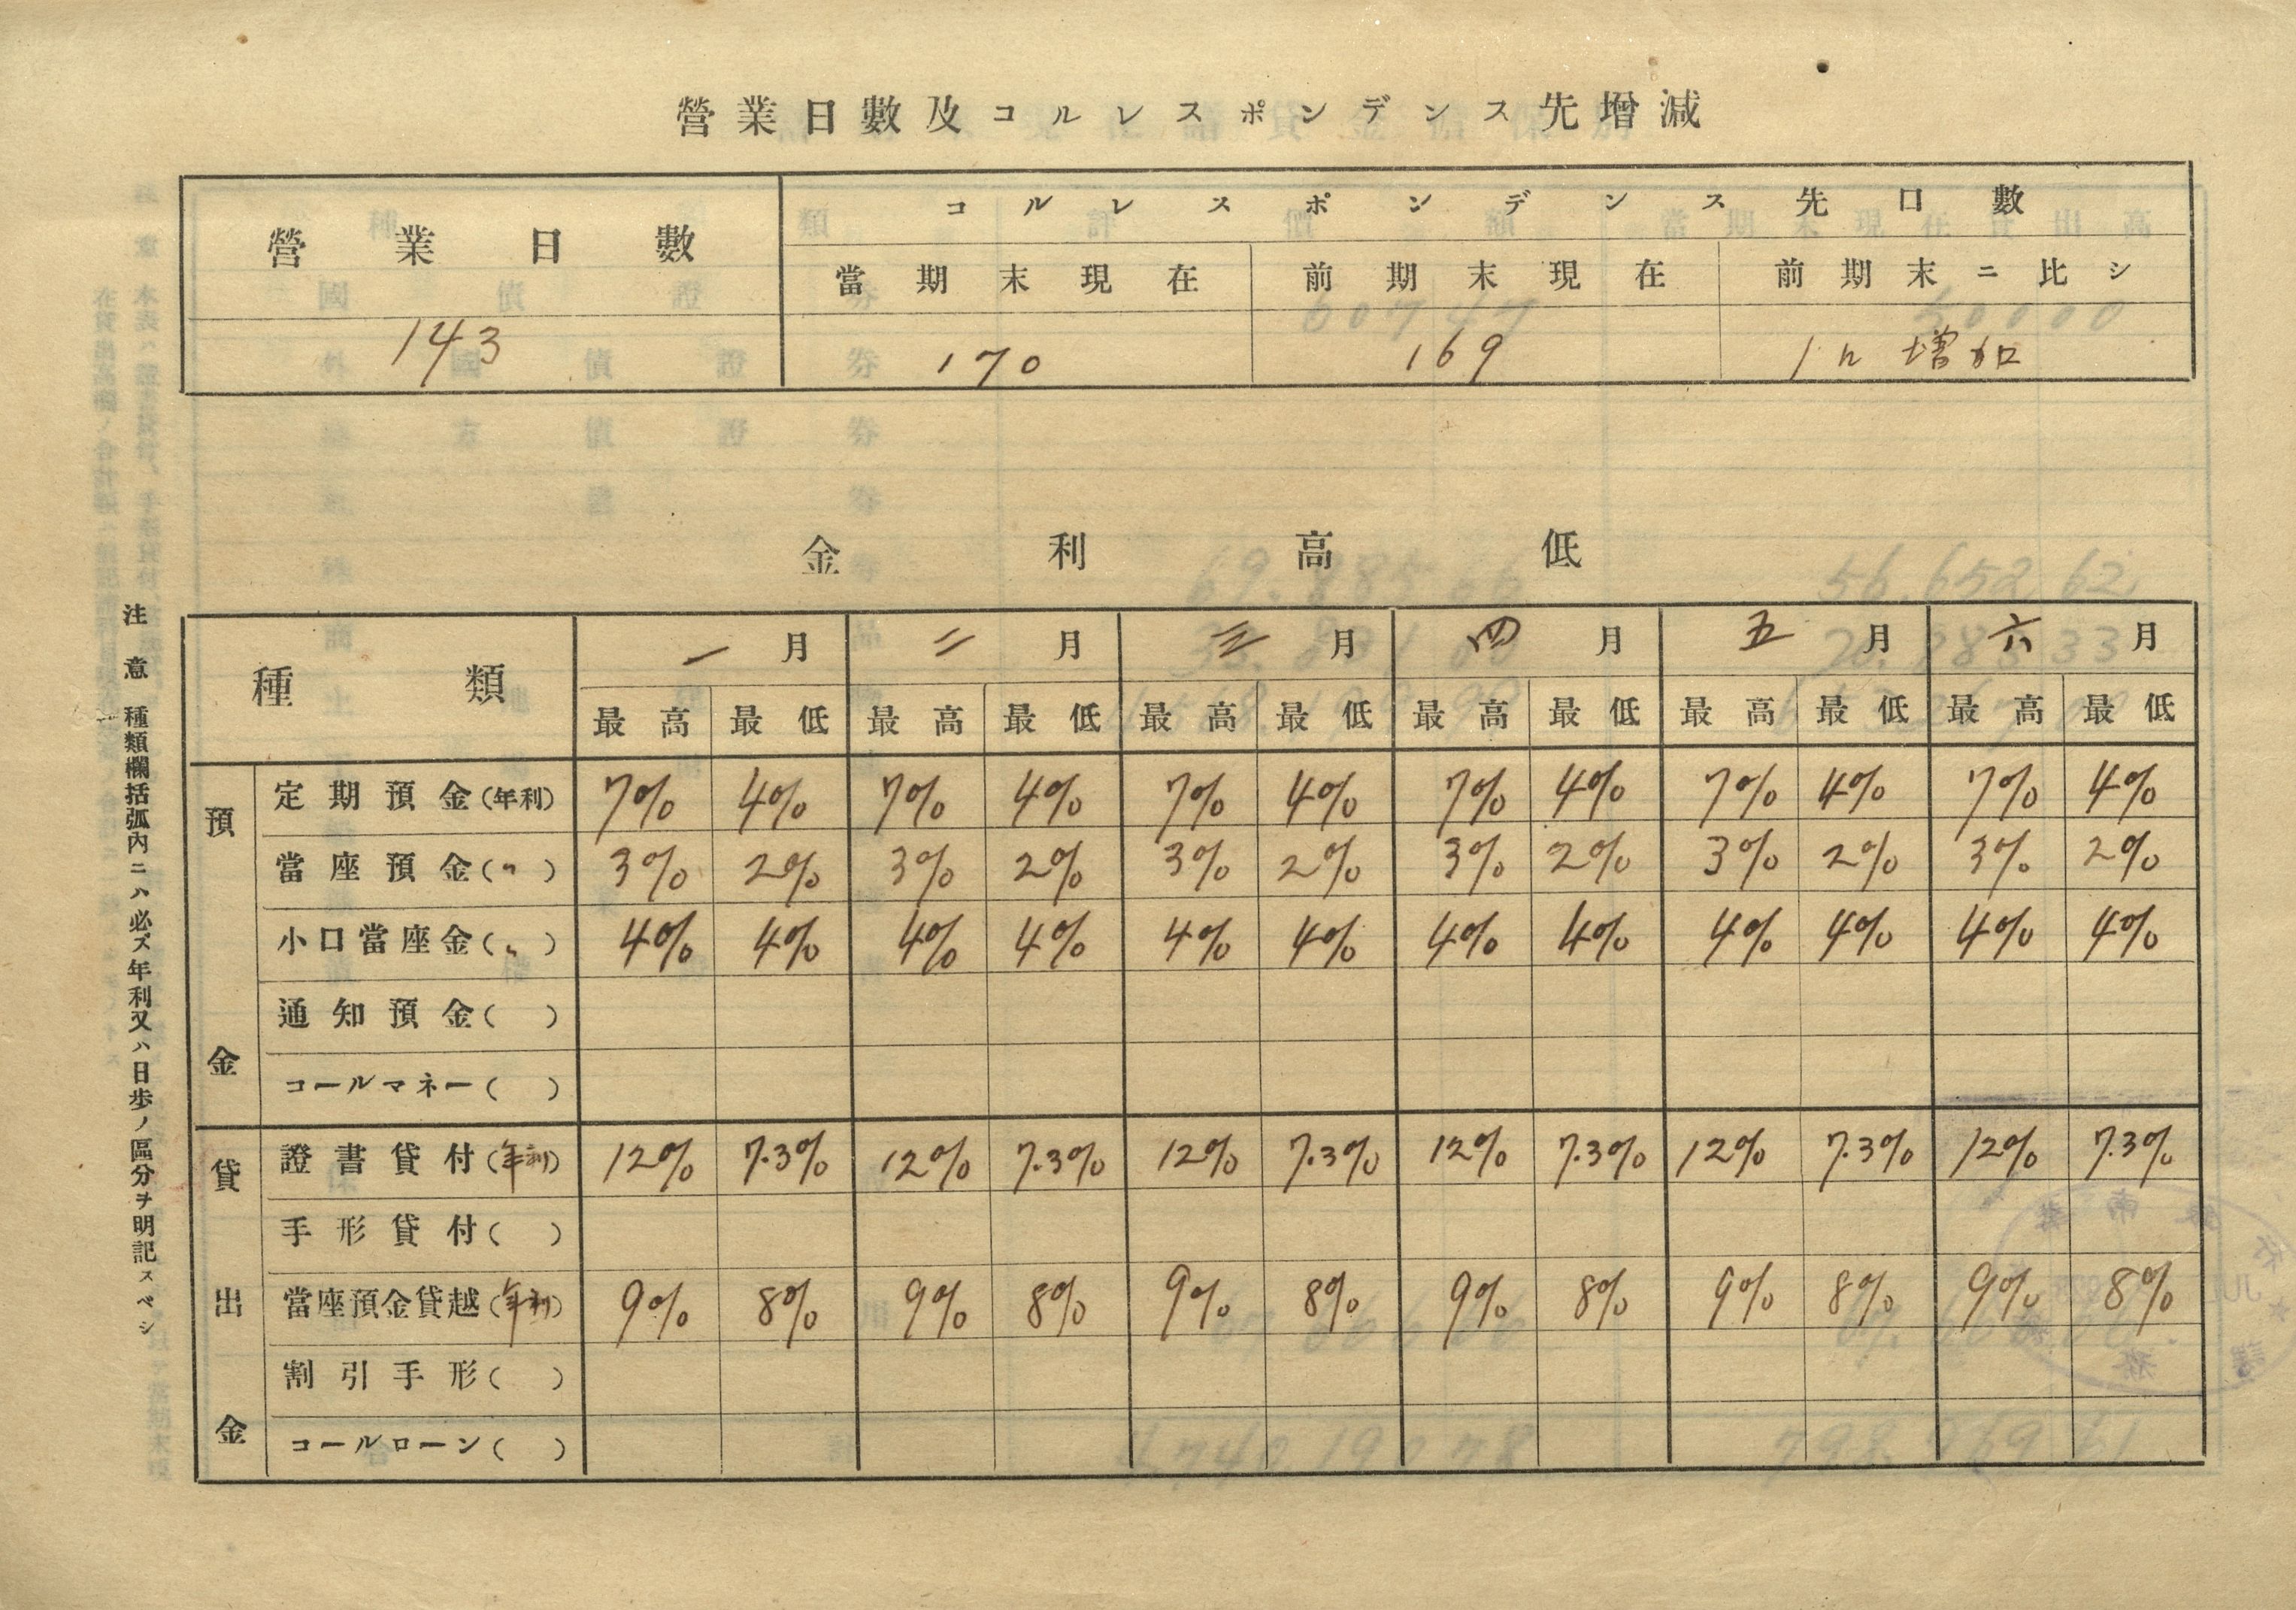 營業日數及コルレスポンデンス先增減
營業日數 コルレスポンデンス先口數
當期末現在 前期末現在 前期末ニ比シ
143 170 169 1口 増加
金利高低
種類 一月 二月 三月 四月 五月 六月
最高 最低 最高 最低 最高 最低 最高 最低 最高 最低 最高 最低
預金
定期預金(年利) 7% 4% 7% 4% 7% 4% 7% 4% 7% 4% 7% 4%
當座預金(〃) 3% 2% 3% 2% 3% 2% 3% 2% 3% 2% 3% 2%
小口當座金(〃) 4% 4% 4% 4% 4% 4% 4% 4% 4% 4% 4% 4%
通知預金( )
コールマネー( )
貸出金
證書貸付(年利) 12% 7.3% 12% 7.3% 12% 7.3% 12% 7.3% 12% 7.3% 12% 7.3%
手形貸付( )
當座預金貸越(年利) 9% 8% 9% 8% 9% 8% 9% 8% 9% 8% 9% 8%
割引手形( )
コールローン( )
注意 種類欄括弧內ニハ必ズ年利又ハ日步ノ區分ヲ明記スベシ